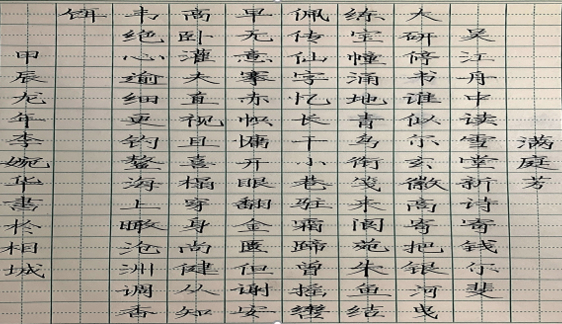 满庭芳
吴江舟中读雪堂新诗寄钱尔斐
大研停书谁似尔玄徽高寄把银河曳
练宝幢涌地青鸟衔笺来阆苑朱鱼结
佩传仙字忆长干小巷霜蹄曾摇辔
早无意搴赤帜慵开眼翻金匮但谢安
高卧灌夫直视且喜榻穿身尚健从知
韦绝心逾细更钓鳌海上瞰沧洲调香
饵
甲辰龙年李婉华書於相城